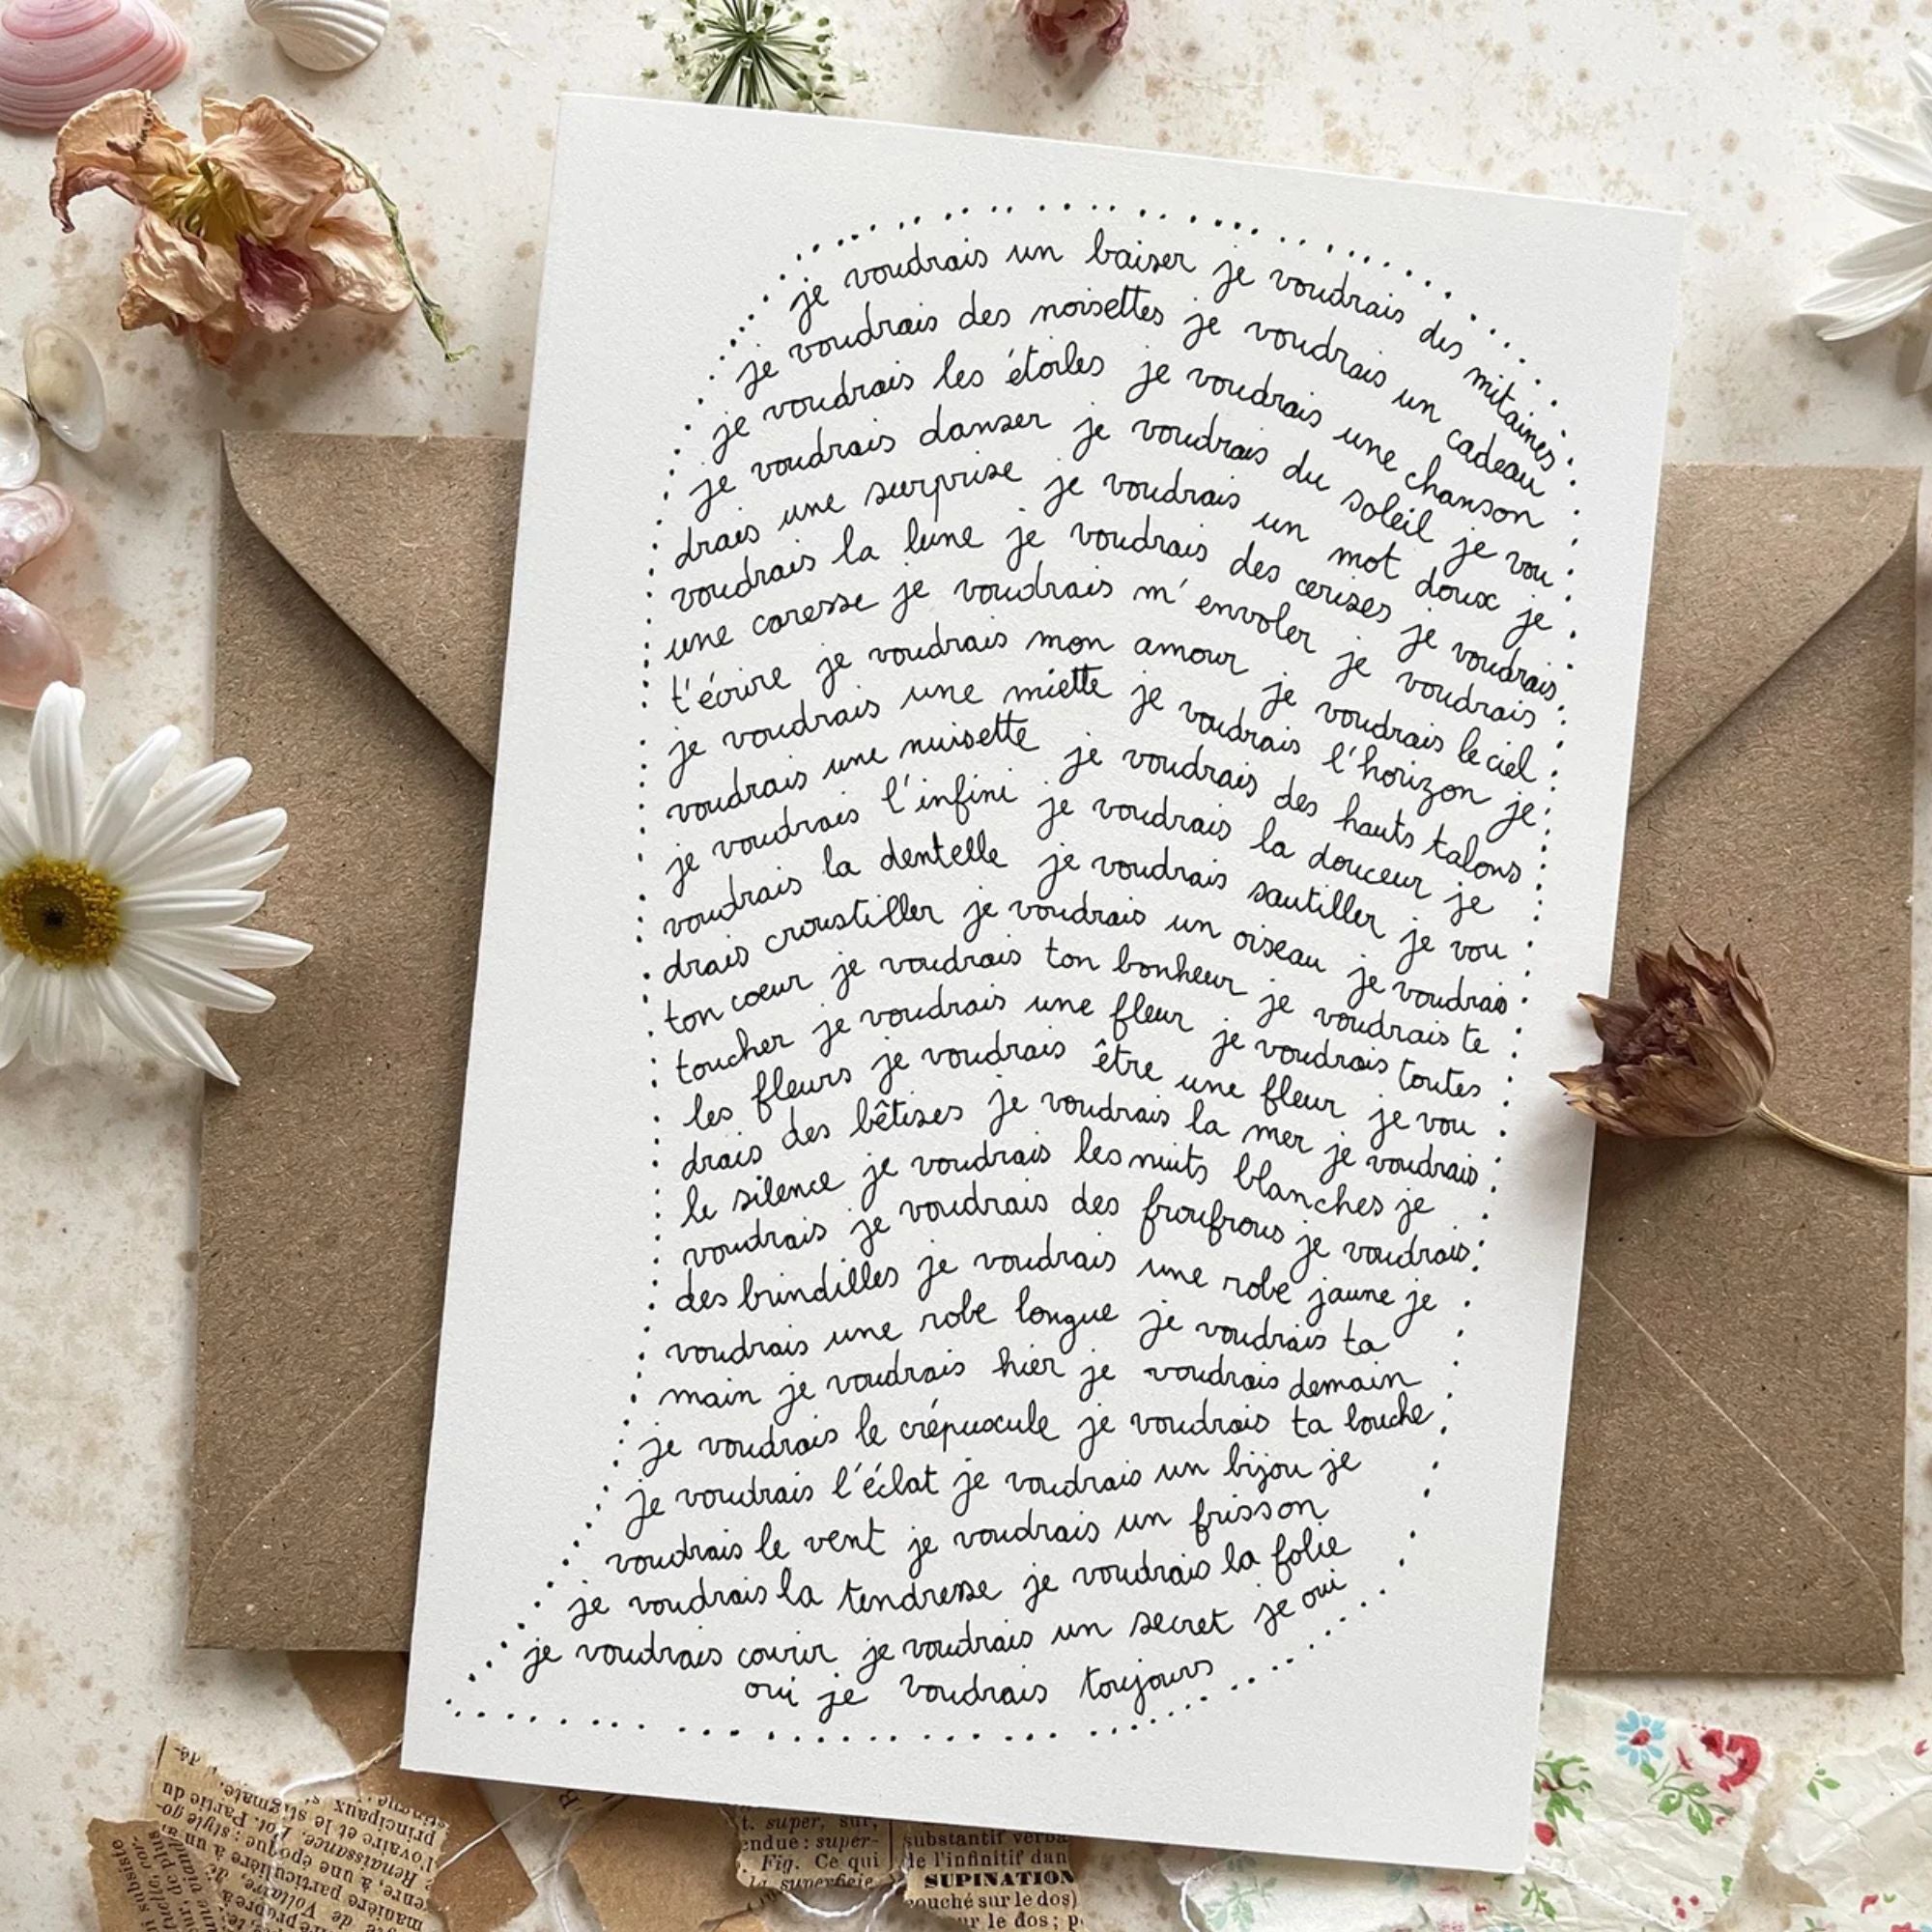 je voudrais un baiser je voudrais des mitaines
je voudrais des noisettes je voudrais un cadeau
je voudrais les étoiles je voudrais une chanson
je voudrais danser je voudrais du soleil je vou
drais une surprise je voudrais un mot doux je
voudrais la lune je voudrais des cerises je voudrais
une caresse je voudrais m'envoler je voudrais
t'écrire je voudrais mon amour je voudrais le ciel
je voudrais une miette je voudrais l'horizon je
voudrais une nuisette je voudrais des hauts talons
je voudrais l'infini je voudrais la douceur je
voudrais la dentelle je voudrais sautiller je vou
drais croustiller je voudrais un oiseau je voudrais
ton cœur je voudrais ton bonheur je voudrais te
toucher je voudrais une fleur je voudrais toutes
les fleurs je voudrais être une fleur je vou
drais des bêtises je voudrais la mer je voudrais
le silence je voudrais les nuits blanches je
voudrais je voudrais des froufrous je voudrais
des brindilles je voudrais une robe jaune je
voudrais une robe longue je voudrais ta
main je voudrais hier je voudrais demain
je voudrais le crépuscule je voudrais ta bouche
je voudrais l'éclat je voudrais un bijou je
voudrais le vent je voudrais un frisson
je voudrais la tendresse je voudrais la folie
je voudrais courir je voudrais un secret je oui
oui je voudrais toujours
t. super, sur,
endue : super-
Fig. Ce qui
la superficie
substantif verba
de l'infinitif dan
SUPINATION
couché sur le dos)
ur le dos ; p
principaux
l'ovaire et le stigmate.
Renaissance. Bot. Partie du
genre, à une époque : style go-
manière particulière à un